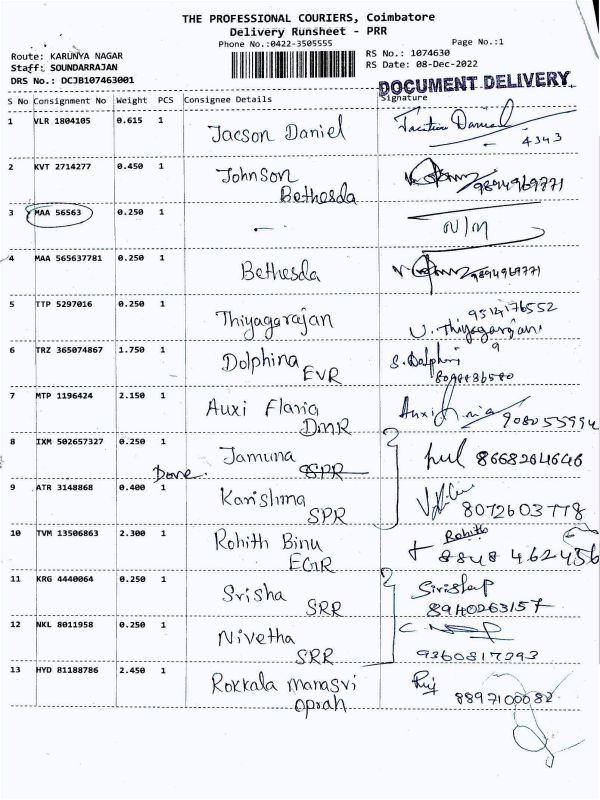 THE PROFESSIONAL COURIERS, Coimbatore
Delivery Runsheet - PRR
Phone No.:0422-3505555 Page No.:1
Route: KARUNYA NAGAR RS No.: 1074630
Staff: SOUNDARRAJAN RS Date: 08-Dec-2022
DRS No.: DCJB107463001
DOCUMENT DELIVERY
S No Consignment No Weight PCS Consignee Details Signature
1 VLR 1804105 0.615 1 Jacson Daniel Daniel
4343
2 KVT 2714277 0.450 1 Johnson
Bethesda 9894969771
3 MAA 56563 0.250 1 - N/M
4 MAA 565637781 0.250 1 Bethesda 9894969771
5 TTP 5297016 0.250 1 Thiyagarajan 9514176552
U. Thiyagarajan
6 TRZ 365074867 1.750 1 Dolphina S. Dolphin
EVR
7 MTP 1196424 2.150 1 Auxi Flavia Auxi
DMR 908055994
8 IXM 502657327 0.250 1 Jamuna 8668264646
Done. SPR
9 ATR 3148868 0.400 1 Karishma
SPR 8072603778
10 TVM 13506863 2.300 1 Rohith Binu Rohith
EGR 8848 462456
11 KRG 4440064 0.250 1 Srisha
SRR 8940263157
12 NKL 8011958 0.250 1 Nivetha
SRR 9360817293
13 HYD 81188786 2.450 1 Rokkala Manasvi
oprah 8897100082